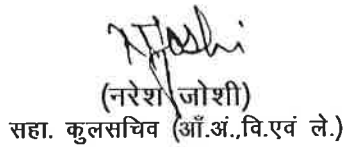 NJoshi
(नरेश जोशी)
सहा. कुलसचिव (ऑं.अं.,वि.एवं ले.)